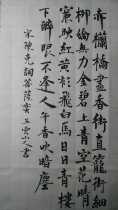 赤欄橋盡香街直籠街細
柳嬌無力金碧上青空花晴
簾映紅黃衫飛白馬日日青樓
下醉眼不逢人午香吹暗塵
宋陳克詞菩薩蠻